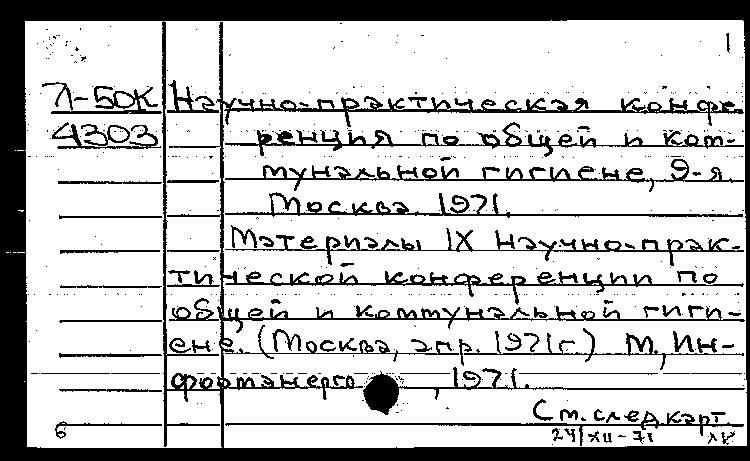 1
Л-50К Научно-практическая конфе-
4303 ренция по общей и ком-
мунальной гигиене, 9-я.
Москва. 1971.
Материалы IX научно-прак-
тической конференции по
общей и коммунальной гиги-
ене. (Москва, апр. 1971г.) М., Ин-
формэнерго, 1971.
См. след карт.
6 24/XII-71